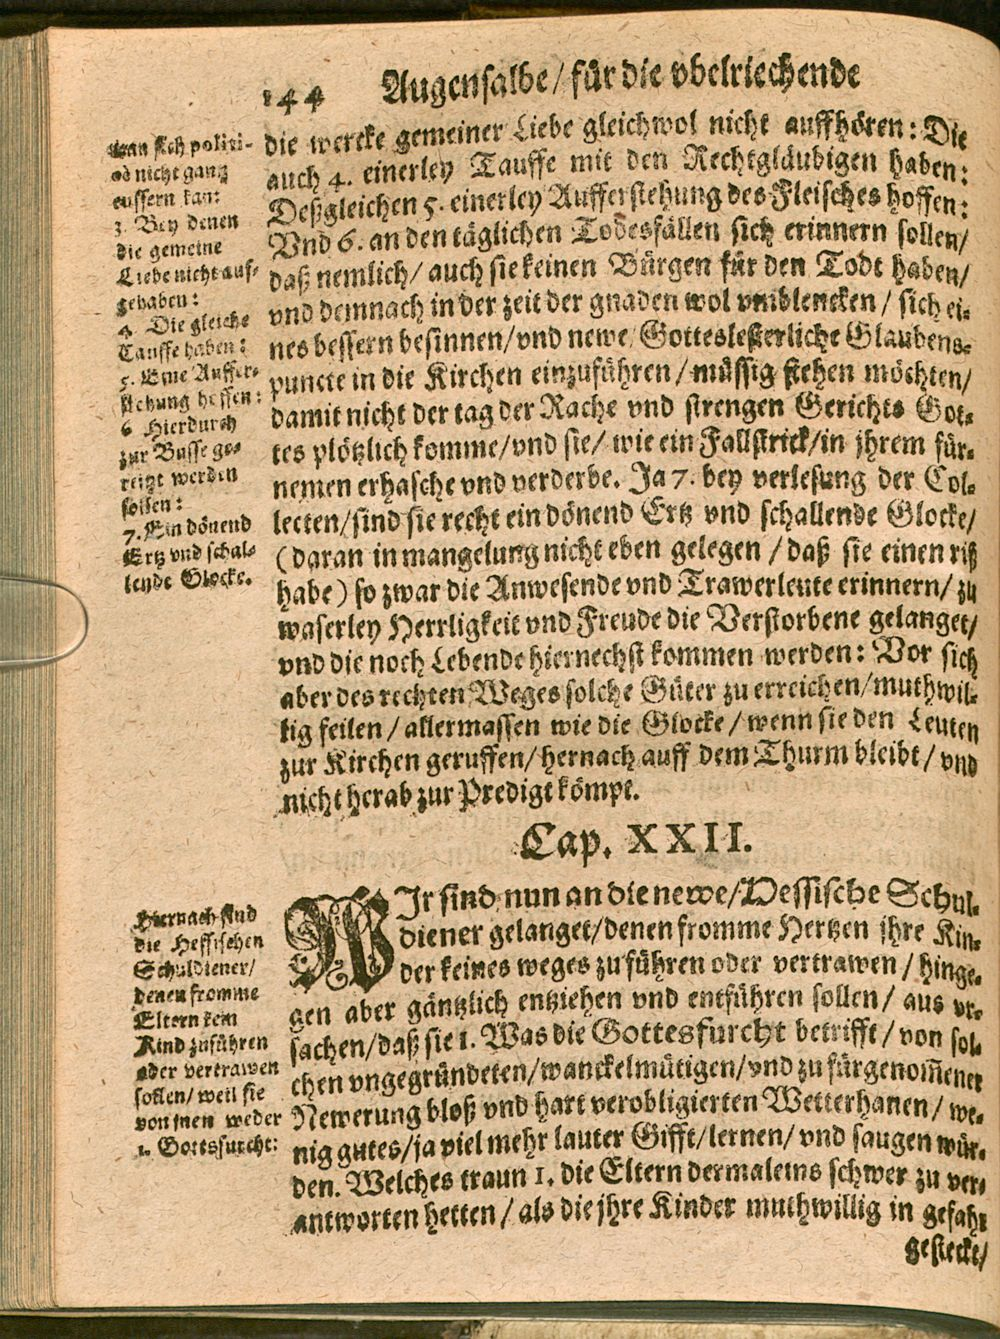 144 Augensalbe/ für die vbelriechende
die wercke gemeiner Liebe gleichwol nicht auffhören: Die
auch 4. einerley Tauffe mit den Rechtgläubigen haben:
Deßgleichen 5. einerley Aufferstehung des Fleisches hoffen:
Vnd 6. an den täglichen Todesfällen sich erinnern sollen/
daß nemlich/ auch sie keinen Bürgen für den Todt haben/
vnd demnach in der zeit der gnaden wol vmblencken/ sich ei-
nes bessern besinnen/ vnd newe Gotteslesterliche Glaubens-
puncte in die Kirchen einzuführen/ müssig stehen möchten/
damit nicht der tag der Rache vnd strengen Gerichts Got-
tes plötzlich komme/ vnd sie/ wie ein Fallstrick/ in jhrem für-
nemen erhasche vnd verderbe. Ja 7. bey verlesung der Col-
lecten/ sind sie recht ein dönend Ertz vnd schallende Glocke/
(daran in mangelung nicht eben gelegen/ daß sie einen riß
habe) so zwar die Anwesende vnd Trawerleute erinnern/ zu
waserley Herrligkeit vnd Freude die Verstorbene gelanget/
vnd die noch Lebende hiernechst kommen werden: Vor sich
aber des rechten Weges solche Güter zu erreichen/ muthwil-
lig feilen/ allermassen wie die Glocke/ wenn sie den Leuten
zur Kirchen geruffen/ hernach auff dem Thurm bleibt/ vnd
nicht herab zur Predigt kömpt.
man sich politi-
cè nicht gantz
eussern kan:
3. Bey denen
die gemeine
Liebe nicht auf-
gehaben:
4. Die gleiche
Tauffe haben:
5. Eine Auffer-
stehung hoffen:
6 Hierdurch
zur Busse ge-
reitzt werden
sollen:
7. Ein dönend
Ertz vnd schal-
lende Glocke.
Cap. XXII.
WIr sind nun an die newe/ Hessische Schul-
diener gelanget/ denen fromme Hertzen jhre Kin-
der keines weges zu führen oder vertrawen/ hinge-
gen aber gäntzlich entziehen vnd entführen sollen/ aus vr-
sachen/ daß sie 1. Was die Gottesfurcht betrifft/ von sol-
chen vngegründeten/ wanckelmütigen/ vnd zu fürgenom̃ener
Newerung bloß vnd hart verobligierten Wetterhanen/ we-
nig gutes/ ja viel mehr lauter Gifft/ lernen/ vnd saugen wür-
den. Welches traun 1. die Eltern dermaleins schwer zu ver-
antworten hetten/ als die jhre Kinder muthwillig in gefahr
gesteckt/
Hiernach sind
die Hessischen
Schuldiener/
denen fromme
Eltern kein
Kind zuführen
oder vertrawen
sollen/ weil sie
von jnen weder
1. Gottsfurcht: